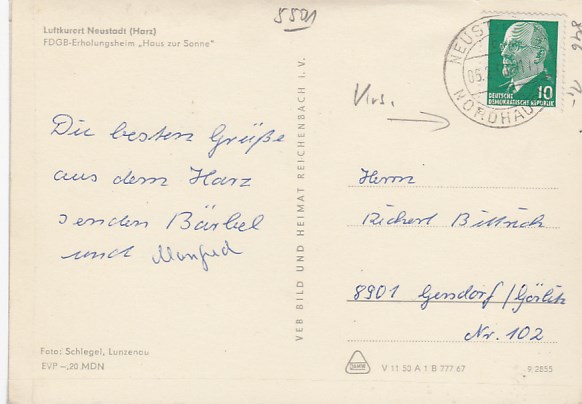 5501
Luftkurort Neustadt (Harz)
FDGB-Erholungsheim „Haus zur Sonne"
Die besten Grüße
aus dem Harz
senden Bärbel
und Manfred
Foto: Schlegel, Lunzenau
EVP –,20 MDN
VEB BILD UND HEIMAT REICHENBACH I. V.
NORDHAU
DEUTSCHE
DEMOKRATISCHE REPUBLIK
10
1,-
Herrn
Bittrich
8901 Gersdorf/Görlitz
Nr. 102
V 11 50 A 1 B 777 67
9 2855